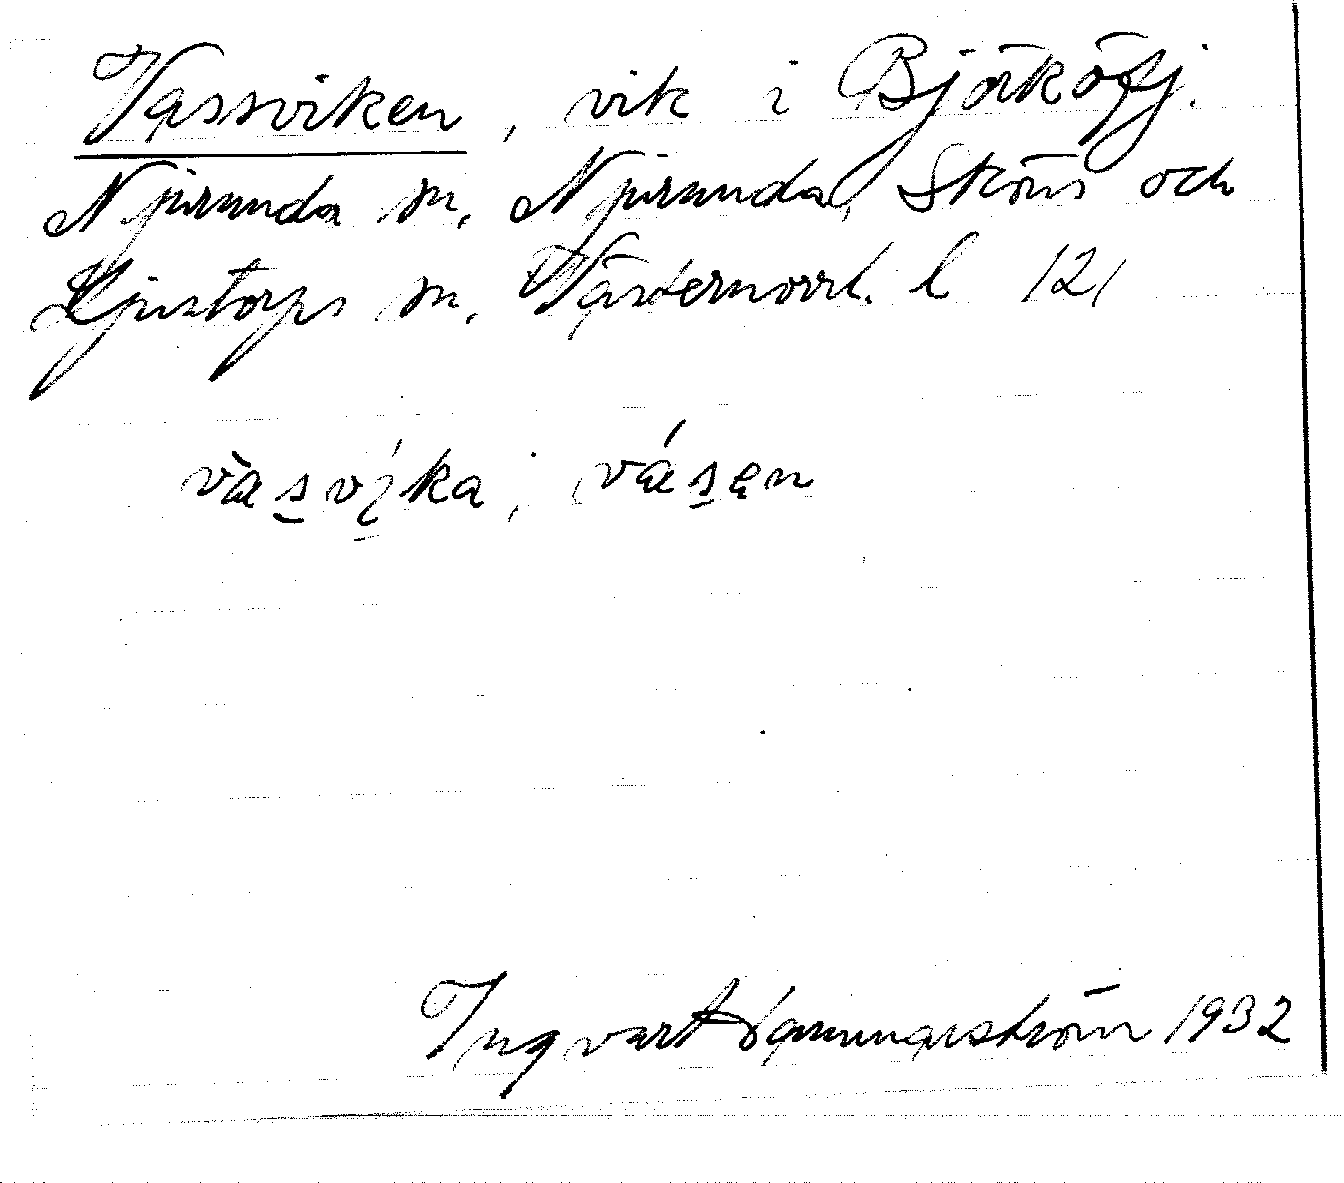 Vassviken, vik i Björköfj.
Njurunda sn, Njurunda, Sköns och
Ljustorps sn, Västernorrl. l 121
Ingvart Hammarström 1932